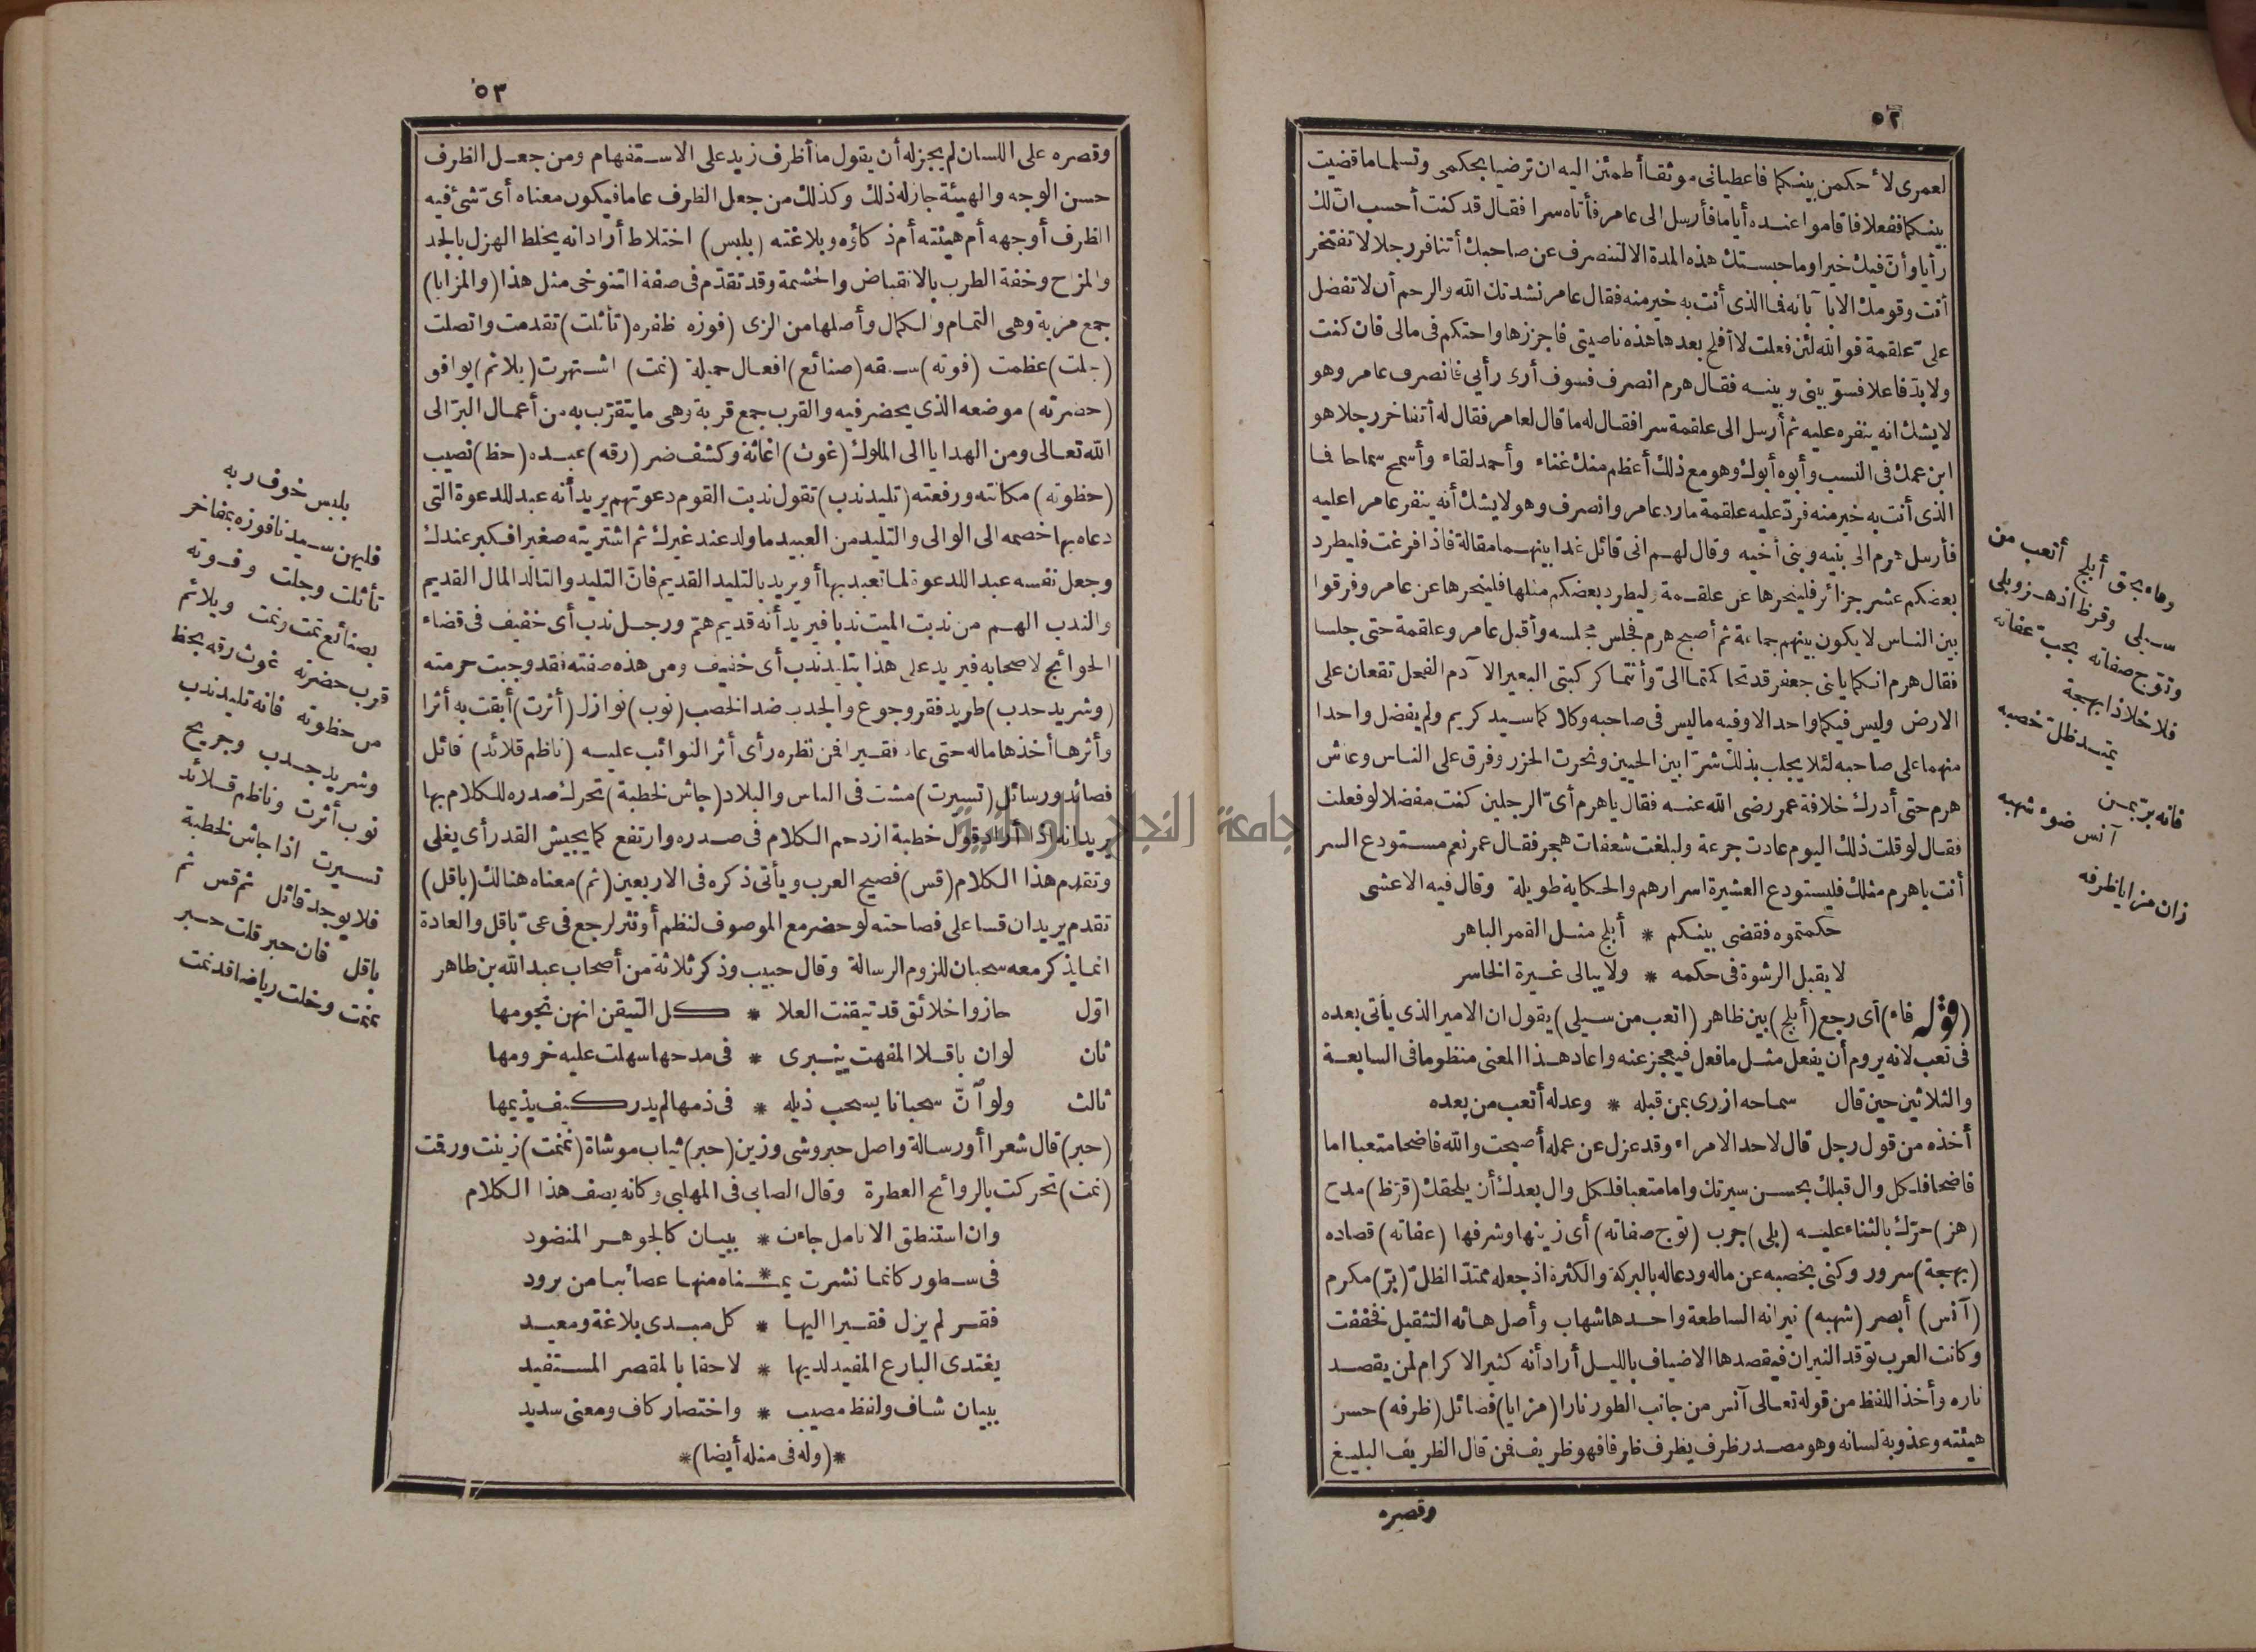 ٥٢
لعمرى لأحكمن بينكما فاعطيانى موثقا أطمئن اليه ان ترضيا بحكمى وتسلما ما قضيت
بينكما ففعلا فاقاموا عنده أياما فأرسل الى عامر فأتاه سرا فقال قد كنت أحسب انّ لك
رأيا وأن فيك خيرا وما حبستك هذه المدة الا لتنصرف عن صاحبك أتنافر رجلا لا تفتخر
أنت وقومك الا بآبائه فما الذى أنت به خير منه فقال عامر نشدتك الله والرحم أن لا تفضل
علىّ علقمة فو الله لئن فعلت لا أفلح بعدها هذه ناصيتى فاجززها واحتكم فى مالى فان كنت
ولا بدّ فاعلا فسوّ بينى وبينه فقال هرم انصرف فسوف أرى رأيى فانصرف عامر وهو
لا يشك انه ينفره عليه ثم أرسل الى علقمة سرا فقال له ما قال لعامر فقال له أتفاخر رجلا هو
ابن عمك فى النسب وأبوه أبوك وهو مع ذلك أعظم منك غناء وأحمد لقاء وأسمح سماحا فما
الذى أنت به خير منه فردّ عليه علقمة ما رد عامر وانصرف وهو لا يشك أنه ينفر عامرا عليه
فأرسل هرم الى بنيه وبنى أخيه وقال لهم انى قائل غدا بينهما مقالة فاذا فرغت فليطرد
بعضكم عشر جزائر فلينحرها عن علقمة وليطرد بعضكم مثلها فلينحرها عن عامر وفرقوا
بين الناس لا يكون بينهم جماعة ثم أصبح هرم فجلس مجلسه وأقبل عامر وعلقمة حتى جلسا
فقال هرم انكما يا بنى جعفر قد تحاكمتما الىّ وأنتما كركبتى البعير الآدم الفحل تقعان على
الارض وليس فيكما واحد الا وفيه ما ليس فى صاحبه وكلاكما سيد كريم ولم يفضل واحدا
منهما على صاحبه لئلا يجلب بذلك شرّا بين الحيين ونحرت الجزر وفرق على الناس وعاش
هرم حتى أدرك خلافة عمر رضى الله عنه فقال يا هرم أىّ الرجلين كنت مفضلا لو فعلت
فقال لو قلت ذلك اليوم عادت جرعة ولبلغت شعفات هجر فقال عمر نعم مستودع السر
أنت يا هرم مثلك فليستودع العشيرة اسرارهم والحكاية طويلة وقال فيه الاعشى
حكمتموه فقضى بينكم * أبلج مثل القمر الباهر
لا يقبل الرشوة فى حكمه * ولا يبالى غبرة الخاسر
(قوله فاء) أى رجع (أبلج) بين ظاهر (اتعب من سيلى) يقول ان الامير الذى يأتى بعده
فى تعب لانه يروم أن يفعل مثل ما فعل فيعجز عنه واعاد هذا المعنى منظوما فى السابعة
والثلاثين حين قال سماحه ازرى بمن قبله * وعدله أتعب من بعده
أخذه من قول رجل قال لاحد الامراء وقد عزل عن عمله أصبحت والله فاضحا متعبا اما
فاضحا فلكل وال قبلك بحسن سيرتك واما متعبا فلكل وال بعدك أن يلحقك (قرّظ) مدح
(هز) حرّك بالثناء عليه (بلى) جرب (توج صفاته) أى زينها وشرفها (عفاته) قصاده
(بهجة) سرور وكنى بخصبه عن ماله ودعا له بالبركة والكثرة اذ جعله ممتدّ الظلّ (برّ) مكرم
(آنس) أبصر (شهبه) نيرانه الساطعة واحدها شهاب وأصل هائه التثقيل فخففت
وكانت العرب توقد النيران فيقصدها الاضياف بالليل أراد أنه كثير الاكرام لمن يقصد
ناره وأخذ اللفظ من قوله تعالى آنس من جانب الطور نارا (مزايا) فضائل (ظرفه) حسن
هيئته وعذوبة لسانه وهو مصدر ظرف يظرف ظرفا فهو ظريف فمن قال الظريف البليغ
وقصره
وفاء بحق أبلج أتعب من
سيلى وقرظ اذ هز وبلى
وتوّج صفاته بحب عفاته
فلا خلا ذا بهجة
يمتد ظلّ خصبه
فانه برّ بمن
آنس ضوء شهبه
زان مزايا ظرفه
٥٣
وقصره على اللسان لم يجز له أن يقول ما أظرف زيد على الاستفهام ومن جعل الظرف
حسن الوجه والهيئة جاز له ذلك وكذلك من جعل الظرف عاما فيكون معناه أىّ شئ فيه
الظرف أوجهه أم هيئته أم ذكاؤه وبلاغته (بلبس) اختلاط أراد انه يخلط الهزل بالجد
والمزاح وخفة الطرب بالانقباض والحشمة وقد تقدّم فى صفة التنوخى مثل هذا (والمزايا)
جمع مزية وهى التمام والكمال وأصلها من الزى (فوزه ظفره (تأثلت) تقدمت واتصلت
(جلت) عظمت (فوته) سبقه (صنائع) افعال جميلة (نمت) اشتهرت (يلائم) يوافق
(حضرته) موضعه الذى يحضر فيه والقرب جمع قربة وهى ما يتقرّب به من أعمال البرّ الى
الله تعالى ومن الهدايا الى الملوك (غوث) اغاثة وكشف ضر (رقه) عبده (حظ) نصيب
(حظوته) مكانته ورفعته (تليد ندب) تقول ندبت القوم دعوتهم يريد أنه عبد للدعوة التى
دعاه بها خصمه الى الوالى والتليد من العبيد ما ولد عند غيرك ثم اشتريته صغيرا فكبر عندك
وجعل نفسه عبدا للدعوة لما تعبد بها أو يريد بالتليد القديم فانّ التليد والتالد المال القديم
والندب الهم من ندبت الميت ندبا فيريد أنه قديم همّ ورجل ندب أى خفيف فى قضاء
الحوائج لاصحابه فيريد على هذا بتليد ندب أى خفيف ومن هذه صفته فقد وجبت حرمته
(وشريد جدب) طريد فقر وجوع والجدب ضد الخصب (نوب) نوازل (أثرت) أبقت به أثرا
وأثرها أخذها ماله حتى عاد فقيرا فمن نظره رأى أثر النوائب عليه (ناظم قلائد) قائل
قصائد ورسائل (تسيرت) مشت فى الناس والبلاد (جاش لخطبة) تحرك صدره للكلام بها
يريد انه اذا أراد قول خطبة ازدحم الكلام فى صدره وارتفع كما يجيش القدر أى يغلى
وتقدّم هذا الكلام (قس) فصيح العرب ويأتى ذكره فى الاربعين (ثم) معناه هنالك (باقل)
تقدم يريد ان قسا على فصاحته لو حضر مع الموصوف لنظم أو نثر لرجع فى عىّ باقل والعادة
انما يذكر معه سحبان للزوم الرسالة وقال حبيب وذكر ثلاثة من أصحاب عبد الله بن طاهر
اوّل حازوا خلائق قد تيقنت العلا * كل التيقن انهن نجومها
ثان لو ان باقلا المفهت ينبرى * فى مدحها سهلت عليه خرومها
ثالث ولو آنّ سحبانا يسحب ذيله * فى ذمها لم يدر كيف يذيمها
(حبر) قال شعرا أو رسالة واصل حبر وشى وزين (حبر) ثياب موشاة (نمنمت) زينت ورقت
(نمت) تحركت بالروائح العطرة وقال الصابى فى المهلبى وكانه يصف هذا الكلام
وان استنطق الانامل جاءت * ببيان كالجوهر المنضود
فى سطور كانما نشرت يمـ * ـناه منها عصائبا من برود
فقر لم يزل فقيرا اليها * كل مبدى بلاغة ومعيد
يغتدى البارع المفيد لديها * لاحقا بالمقصر المستفيد
ببيان شاف ولفظ مصيب * واختصار كاف ومعنى سديد
*(وله فى مثله أيضا)*
بلبس خوف ربه
فليهن سيدنا فوزه بمفاخر
تأثلت وجلت وفوته
بصنائع تمت ونمت ويلائم
قرب حضرته غوث رقه بحظ
من حظوته فانه تليد ندب
وشريد جدب وجريح
نوب أثرت وناظم قلائد
تسيرت اذا جاش لخطبة
فلا يوجد قائل ثم قس ثم
باقل فان حبر قلت حبر
نمنمت وخلت رياضا قد نمت
جامعة النجاح الوطنية